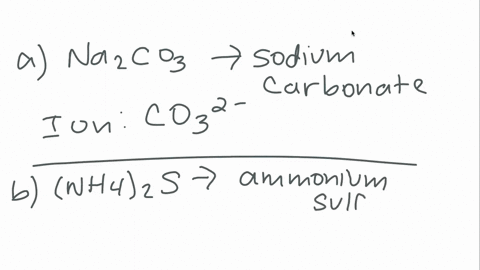 a) Na2CO3 → sodium
carbonate
Ion: CO3²⁻
b) (NH4)2S → ammonium
sulf